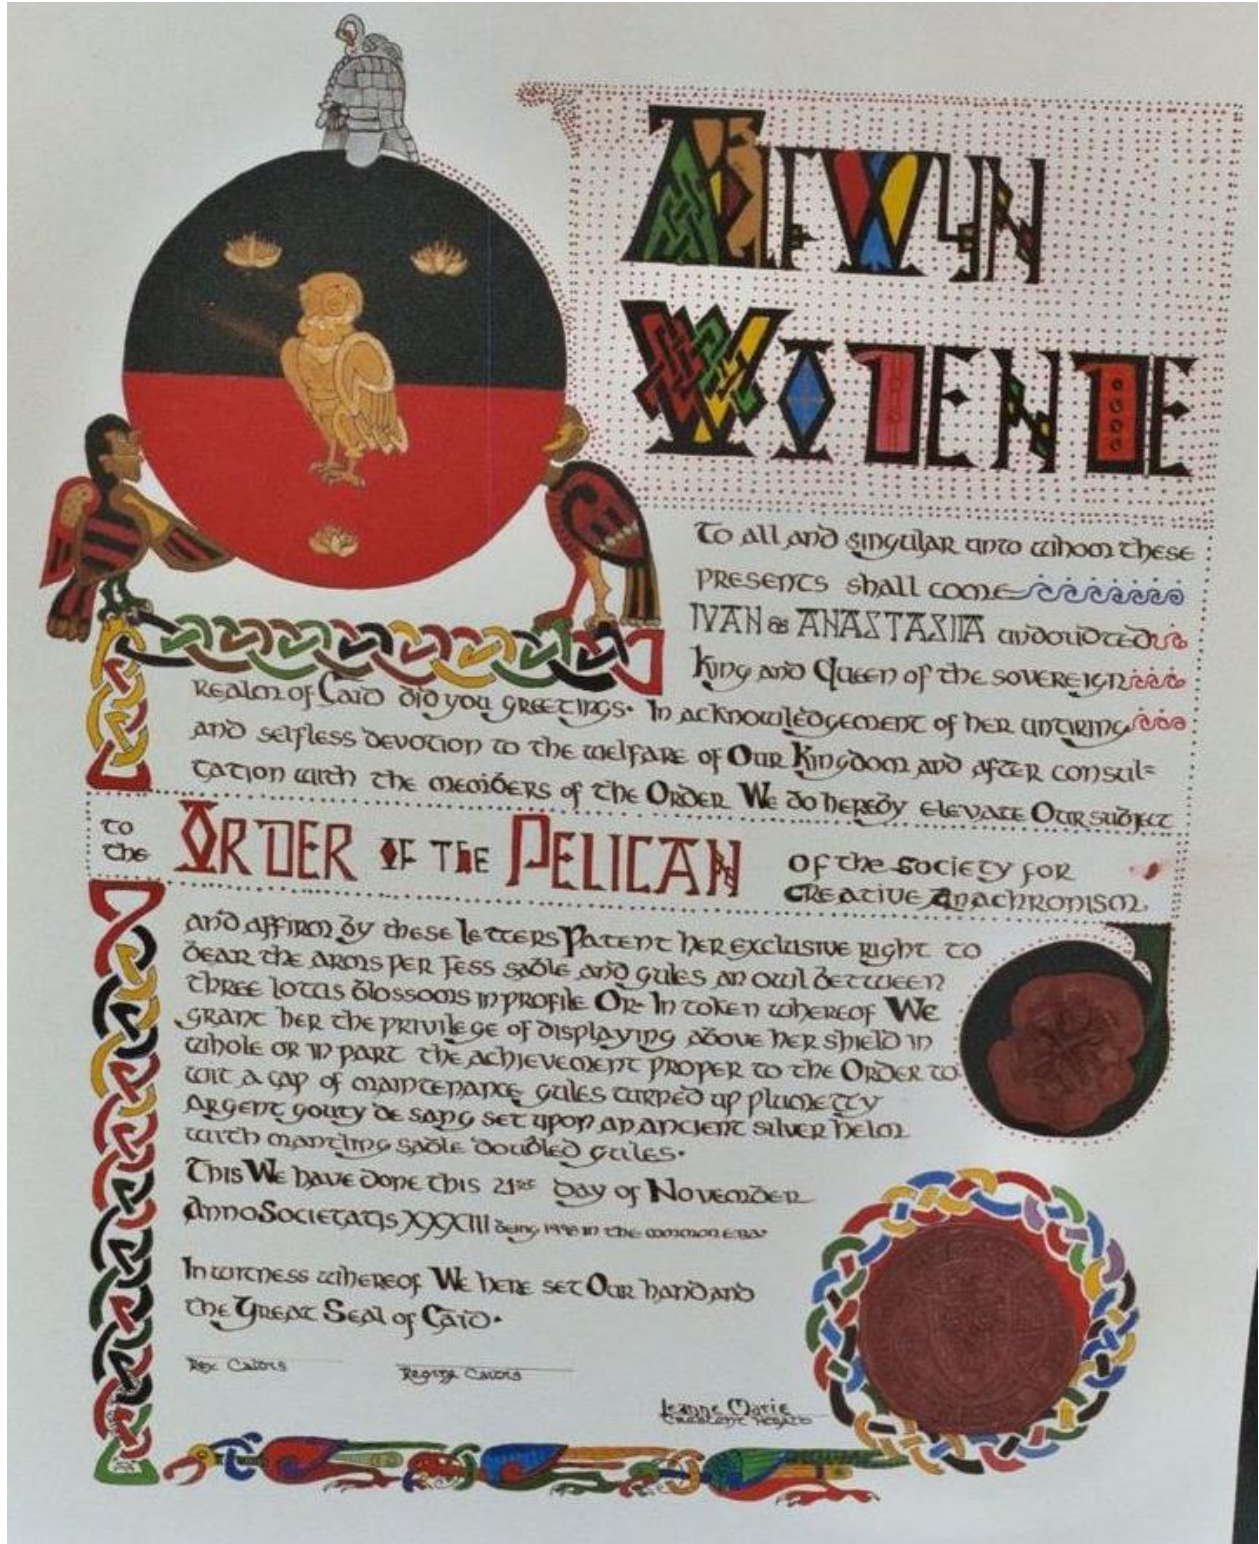 AELFWYN
WIDENDE
To all and singular unto whom these
presents shall come
IVAN & ANASTASIIA undoubted
King and Queen of the sovereign
Realm of Caid did you greetings. In acknowledgement of her untiring
and selfless devotion to the welfare of Our Kingdom and after consul=
tation with the members of the Order We do hereby elevate Our subject
to
the
ORDER OF THE PELICAN
of the Society for
Creative Anachronism.
and affirm by these letters Patent her exclusive right to
bear the arms per fess sable and gules an owl between
three lotus blossoms in profile Or. In token whereof We
grant her the privilege of displaying above her shield in
whole or in part the achievement proper to the Order to
wit a cap of maintenance gules turned up plumetty
argent goutty de sang set upon an ancient silver helm
with mantling sable doubled gules.
This We have done this 21st Day of November
Anno Societatis XXXIII being 1998 in the common era.
In witness whereof We here set Our hand and
the Great Seal of Caid.
Rex Caidis
Regina Caidis
Jeanne Marie
Crescent Herald